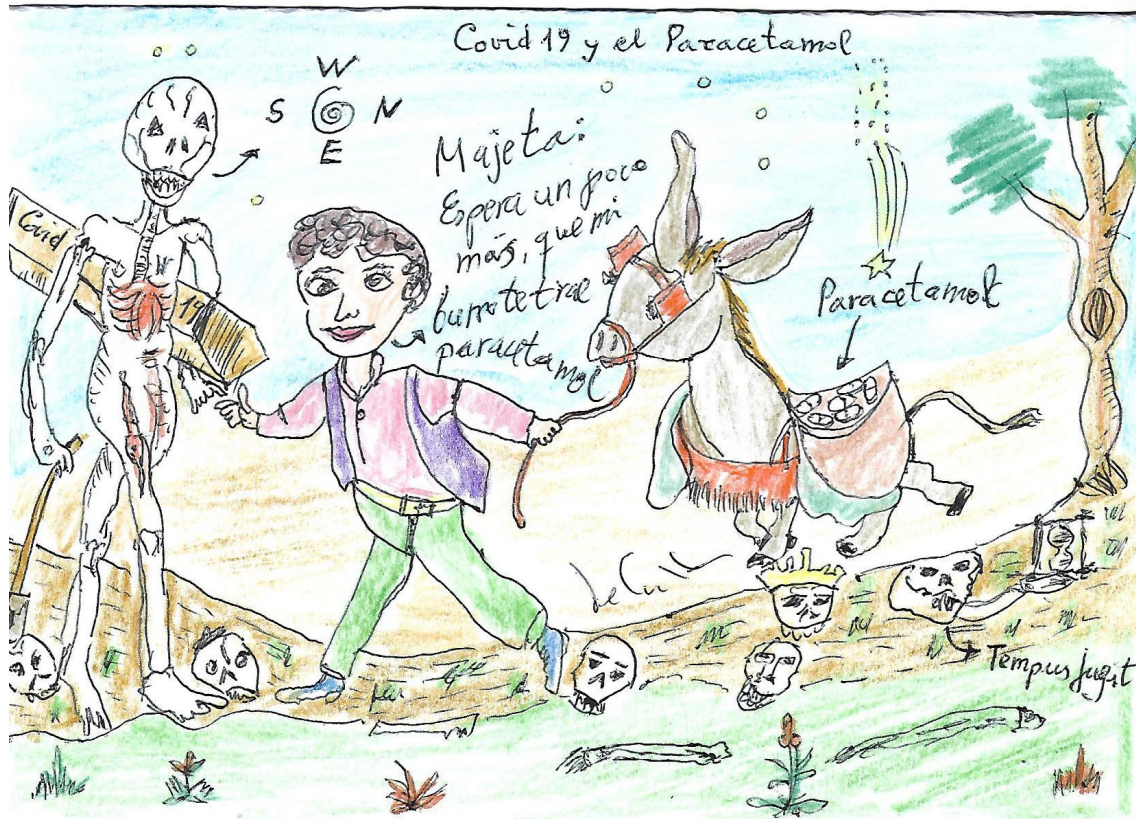 Covid 19 y el Paracetamol
W
S N
E
Majeta:
Espera un poco
más, que mi
burro te trae
paracetamol
Covid
19
Paracetamol
Tempus fugit